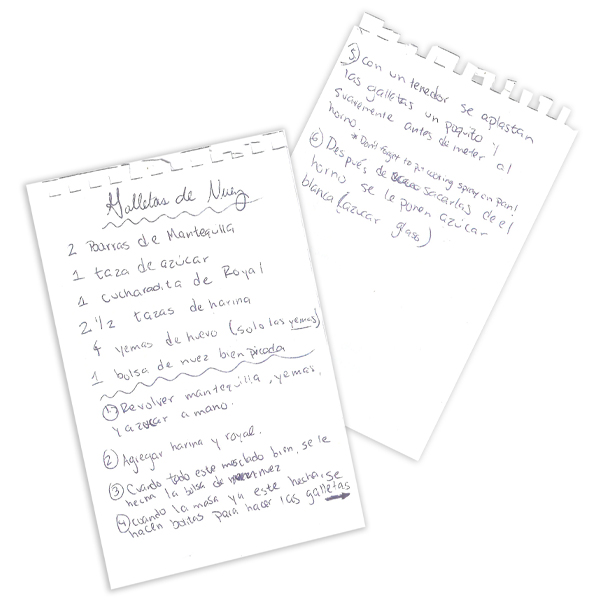 Galletas de Nuez
2 Barras de Mantequilla
1 taza de azúcar
1 cucharadita de Royal
2 1/2 tazas de harina
4 yemas de huevo (solo las yemas)
1 bolsa de nuez bien picada
1) Revolver mantequilla, yemas,
y azucar a mano.
2) Agregar harina y royal.
3) Cuando todo este mesclado bien, se le
hecha la bolsa de nuez
4) cuando la masa ya este hecha, se
hacen bolitas para hacer las galletas
5) Con un tenedor se aplastan
las galletas un poquito y
suavemente antes de meter al
horno.
*Don't forget to put cooking spray on pan!
6) Después de sacarlas de el
horno se le ponen azúcar
blanca (azucar glass)